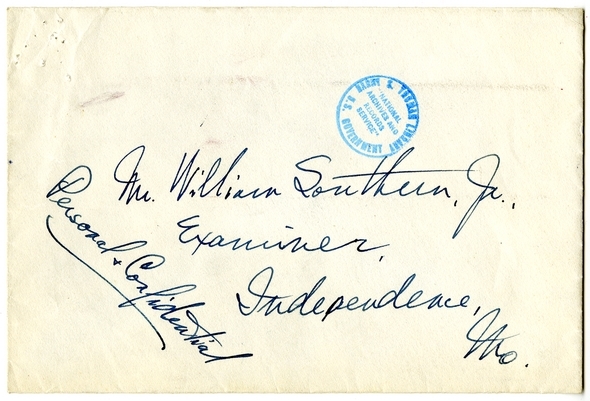 HARRY S. TRUMAN LIBRARY
"NATIONAL
ARCHIVES AND
RECORDS
SERVICE"
U.S. GOVERNMENT
Mr. William Southern, Jr.,
Examiner,
Independence,
Mo.
Personal & Confidential